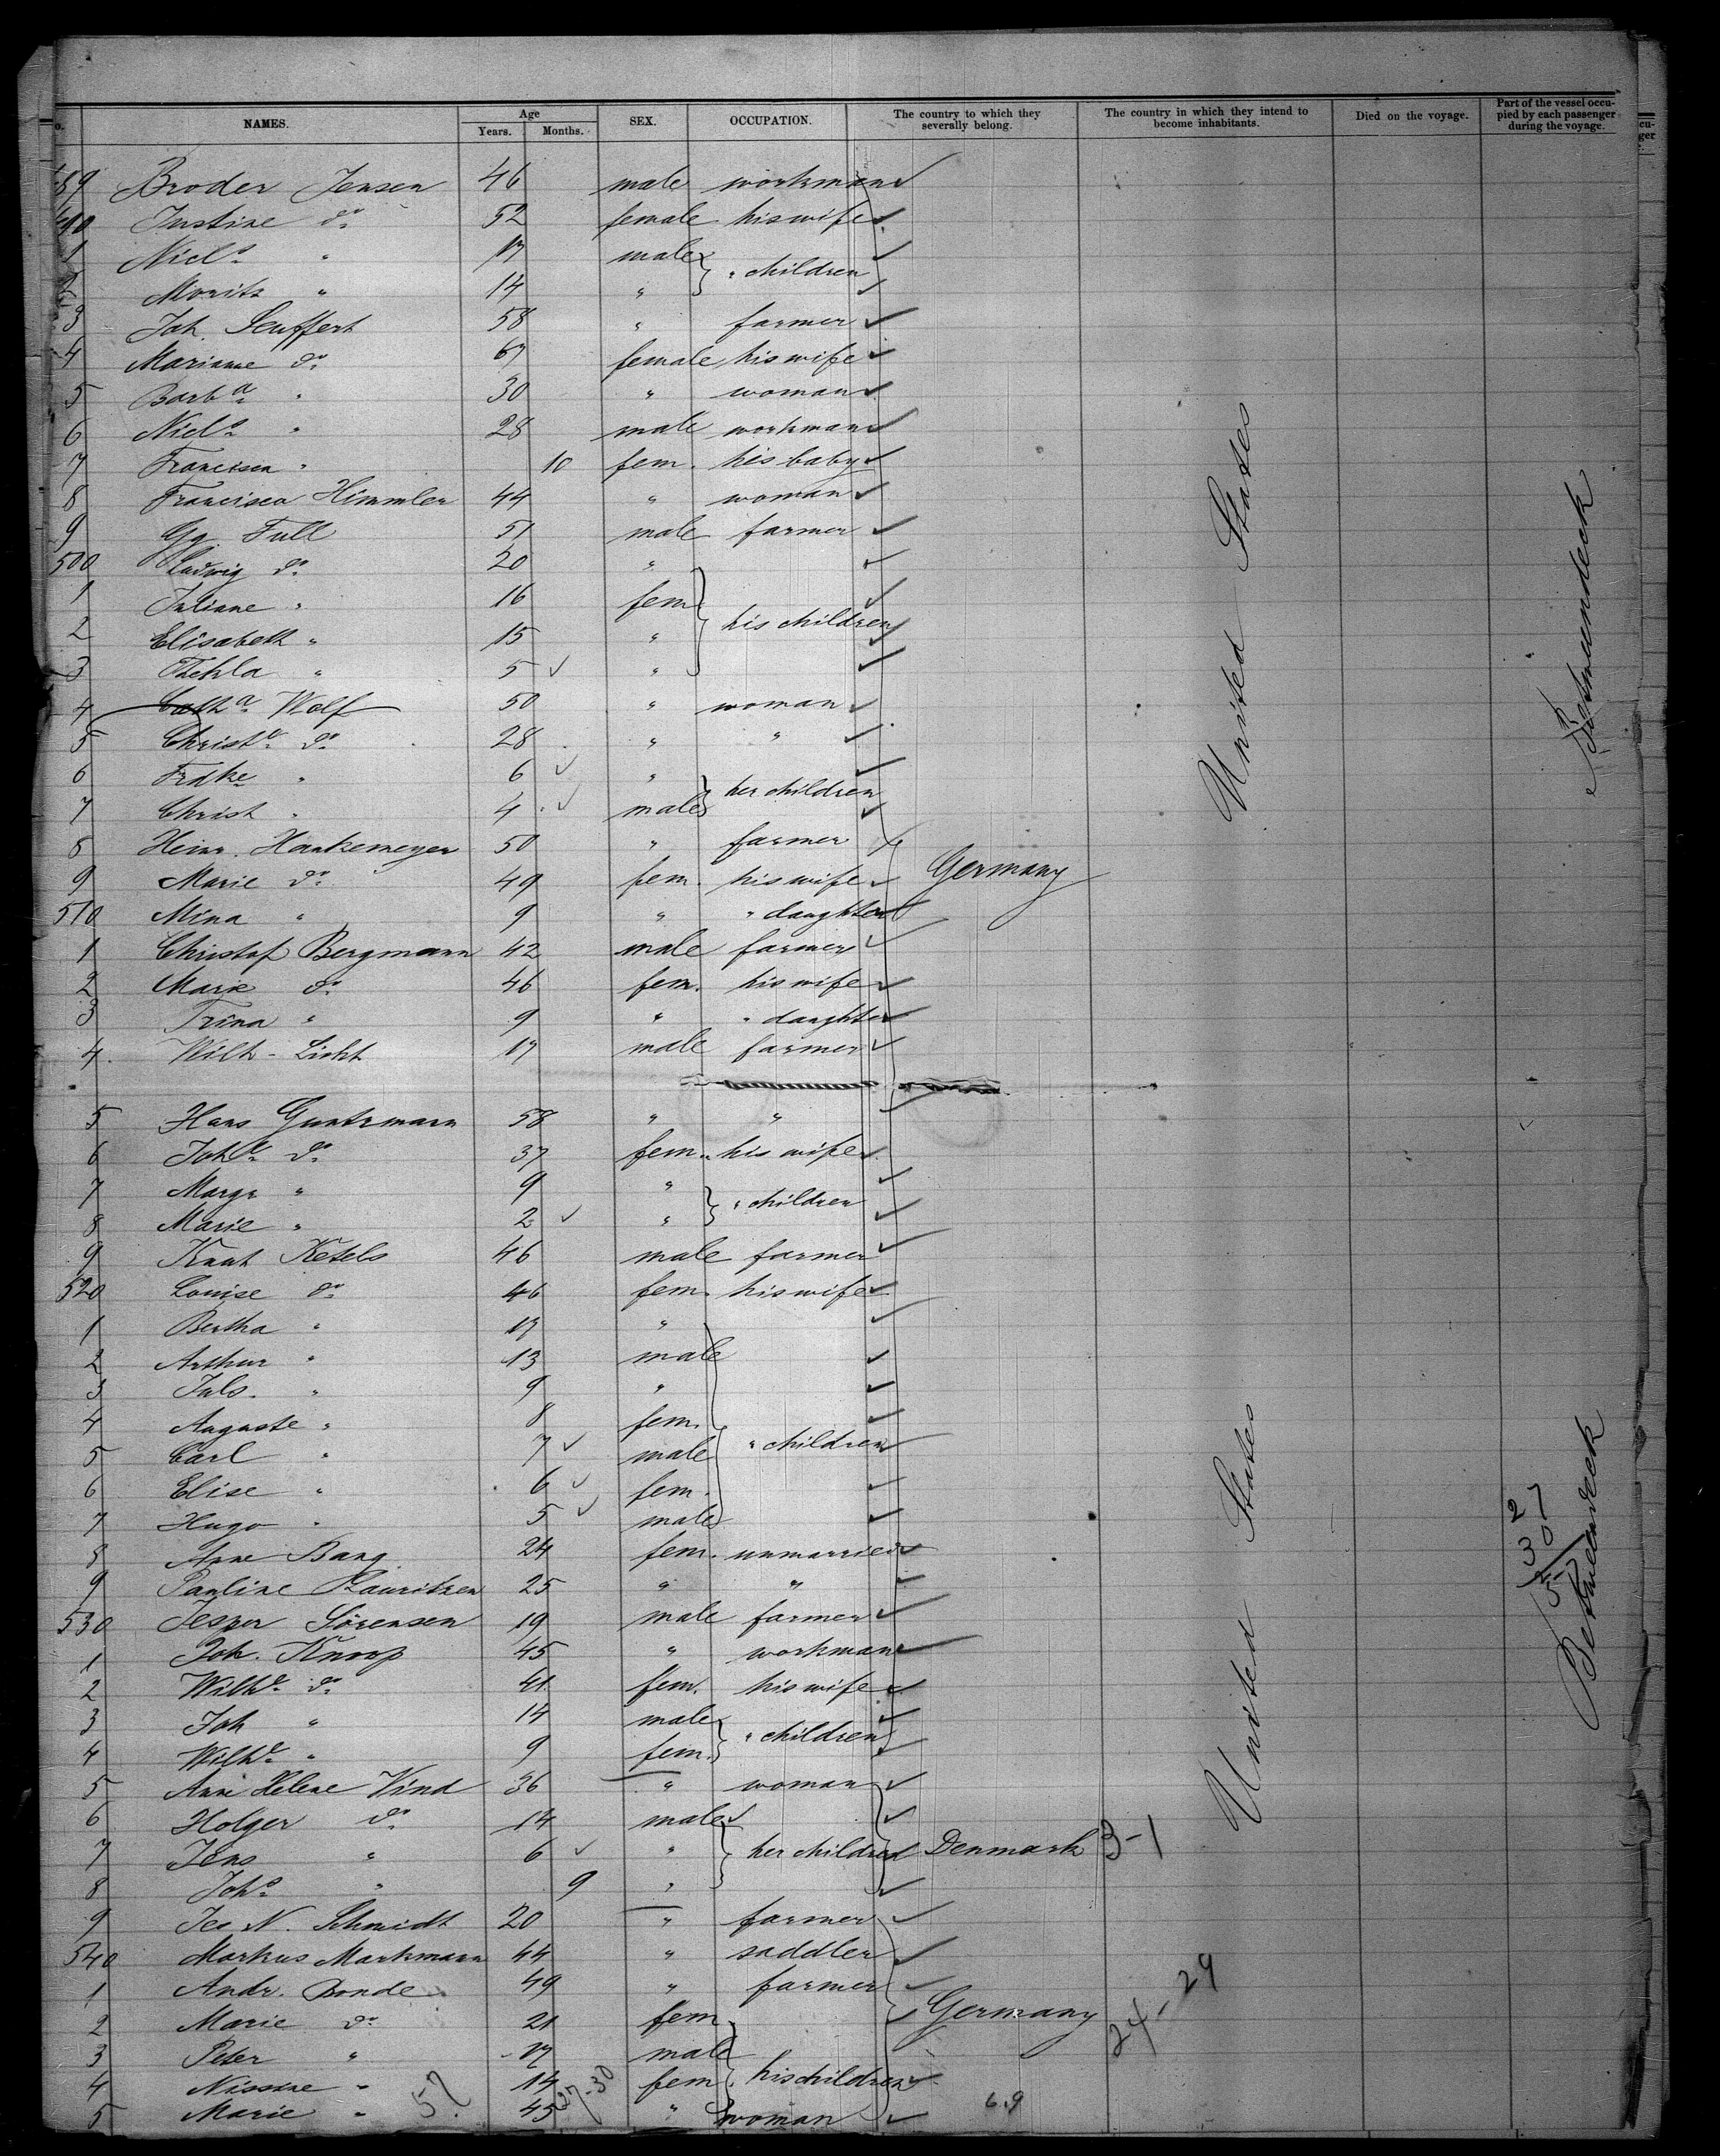 o. NAMES. Age Years. Months. SEX. OCCUPATION. The country to which they severally belong. The country in which they intend to become inhabitants. Died on the voyage. Part of the vessel occupied by each passenger during the voyage.
89 Broder Jensen 46 male workman
490 Justine do 52 female his wife
1 Niclˢ " 17 male " children
2 Moritz " 14 "
3 Joh. Seuffert 58 " farmer
4 Marianne do 67 female his wife
5 Barbᵃ " 30 " woman
6 Niclˢ " 28 male workman
7 Francisca " 10 fem. his baby
8 Francisca Himmler 44 " woman
9 Gg. Full 51 male farmer
500 Ludwig do 20 "
1 Juliane " 16 fem his children
2 Elisabeth " 15 "
3 Thekla " 5 "
4 Cathᵃ Wolf 50 " woman
5 Christᵉ do 28 " "
6 Frdke " 6 " her children
7 Christ " 4 male
8 Heinr. Hankemeyer 50 " farmer
9 Marie do 49 fem. his wife Germany
510 Mina " 9 " " daughter
1 Christof Bergmann 42 male farmer
2 Marie do 46 fem. his wife
3 Trina " 9 " " daughter
4. Wilh. Licht 17 male farmer
5 Hans Guntzmann 58 " "
6 Johᵉ do 37 fem. his wife
7 Margr " 9 " " children
8 Marie " 2 "
9 Knut Ketels 46 male farmer
520 Louise do 46 fem. his wife
1 Bertha " 17 "
2 Arthur " 13 male
3 Juls. " 9 "
4 Auguste " 8 fem.
5 Carl " 7 male " children
6 Elise " 6 fem.
7 Hugo " 5 male
8 Anne Bang 24 fem. unmarried
9 Pauline Lauritzen 25 " "
530 Jesper Sörensen 19 male farmer
1 Joh. Knoop 45 " workman
2 Wilhᵉ do 41 fem. his wife
3 Joh " 14 male " children
4 Wilhᵉ " 9 fem.
5 Ane Helene Vind 36 " woman
6 Holger do 14 male
7 Jens " 6 " her children Denmark 3-1
8 Johˢ " 9 "
9 Jes N. Schmidt 20 " farmer
540 Markus Markmann 44 " saddler
1 Andr. Bonde 49 " farmer
2 Marie do 21 fem. Germany 24-29
3 Peter " 17 male
4 Nissine " 14 fem his children
5 Marie " 45 " woman
57
27-30
6.9
United States
United States
Betweendeck
Betweendeck
27
30
57